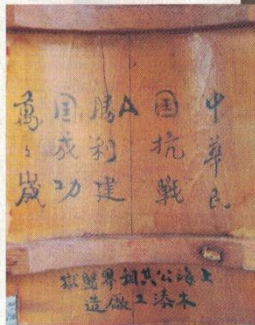 中華民
国抗戰
A
勝利建
国成功
萬々歲
上海公共租界監獄
木漆工做造